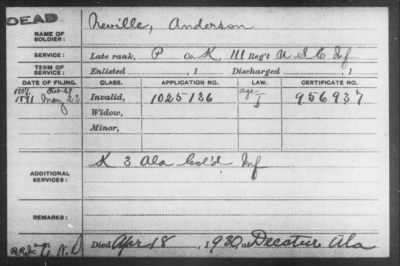 DEAD
NAME OF SOLDIER: Neville, Anderson
SERVICE: Late rank, P Co. K, 111 Reg't U S C Inf
TERM OF SERVICE: Enlisted , 1 Discharged , 1
DATE OF FILING. CLASS. APPLICATION NO. LAW. CERTIFICATE NO.
1891 May 23 Invalid, 1025136 age J 956937
Widow,
Minor,
ADDITIONAL SERVICES: K 3 Ala Col'd Inf
REMARKS:
Died Apr 18 , 1930, at Decatur Ala